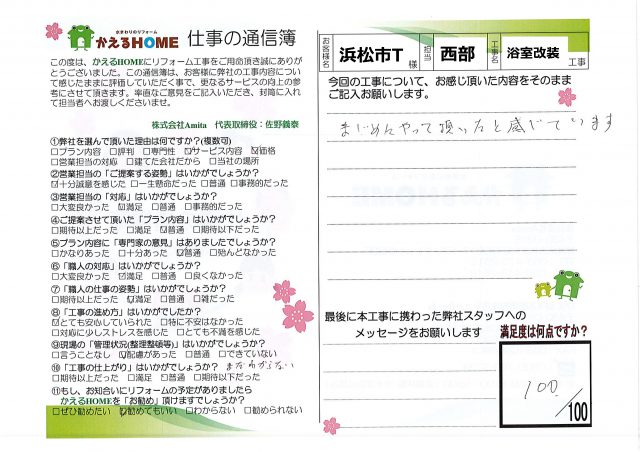 水まわりのリフォーム
かえるHOME 仕事の通信簿
この度は、かえるHOMEにリフォーム工事をご用命頂き誠にありが
とうございました。この通信簿は、お客様に弊社の工事内容につい
て感じたままに評価していただく事で、更なるサービスの向上の参
考にさせて頂きます。率直なご意見をご記入いただき、封筒に入れ
て担当者へお渡しくださいませ。
株式会社Amita 代表取締役：佐野義泰
①弊社を選んで頂いた理由は何ですか?(複数可)
□プラン内容 □評判 □専門性 ☑サービス内容 ☑価格
□営業担当の対応 □建てた会社だから □当社の場所
②営業担当の「ご提案する姿勢」はいかがでしょうか?
☑十分誠意を感じた □一生懸命だった □普通 □事務的だった
③営業担当の「対応」はいかがでしょうか?
□大変良かった ☑満足 □普通 □事務的だった
④ご提案させて頂いた「プラン内容」はいかがでしょうか?
□期待以上だった □満足 ☑普通 □期待以下だった
⑤プラン内容に「専門家の意見」はありましたでしょうか?
□かなりあった □十分あった ☑普通 □殆んどなかった
⑥「職人の対応」はいかがでしょうか?
□大変良かった ☑満足 □普通 □良くなかった
⑦「職人の仕事の姿勢」はいかがでしょうか?
□期待以上だった ☑満足 □普通 □雑だった
⑧「工事の進め方」はいかがでしたか?
☑とても安心していられた □特に不安はなかった
□対応に少しストレスを感じた □とても不満を感じた
⑨現場の「管理状況(整理整頓等)」はいかがでしょうか?
□言うことなし ☑配慮があった □普通 □できていない
⑩「工事の仕上がり」はいかがでしょうか? まだわからない
□期待以上だった □満足 □普通 □期待以下だった
⑪もし、お知合いにリフォームの予定がありましたら
かえるHOMEを「お勧め」頂けますでしょうか?
□ぜひ勧めたい ☑勧めてもいい □わからない □勧められない
お客様名 浜松市T 様 担当 西部 工事名 浴室改装 工事
今回の工事について、お感じ頂いた内容をそのまま
ご記入お願いします。
まじめにやって頂いたと感じています
最後に本工事に携わった弊社スタッフへの
メッセージをお願いします
満足度は何点ですか?
100/100